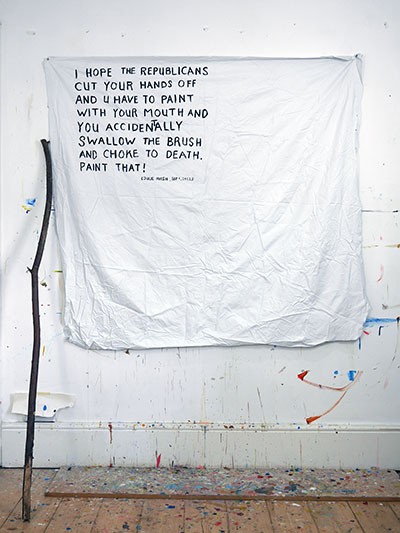 I HOPE THE REPUBLICANS
CUT YOUR HANDS OFF
AND U HAVE TO PAINT
WITH YOUR MOUTH AND
YOU ACCIDENTALLY
SWALLOW THE BRUSH
AND CHOKE TO DEATH.
PAINT THAT!